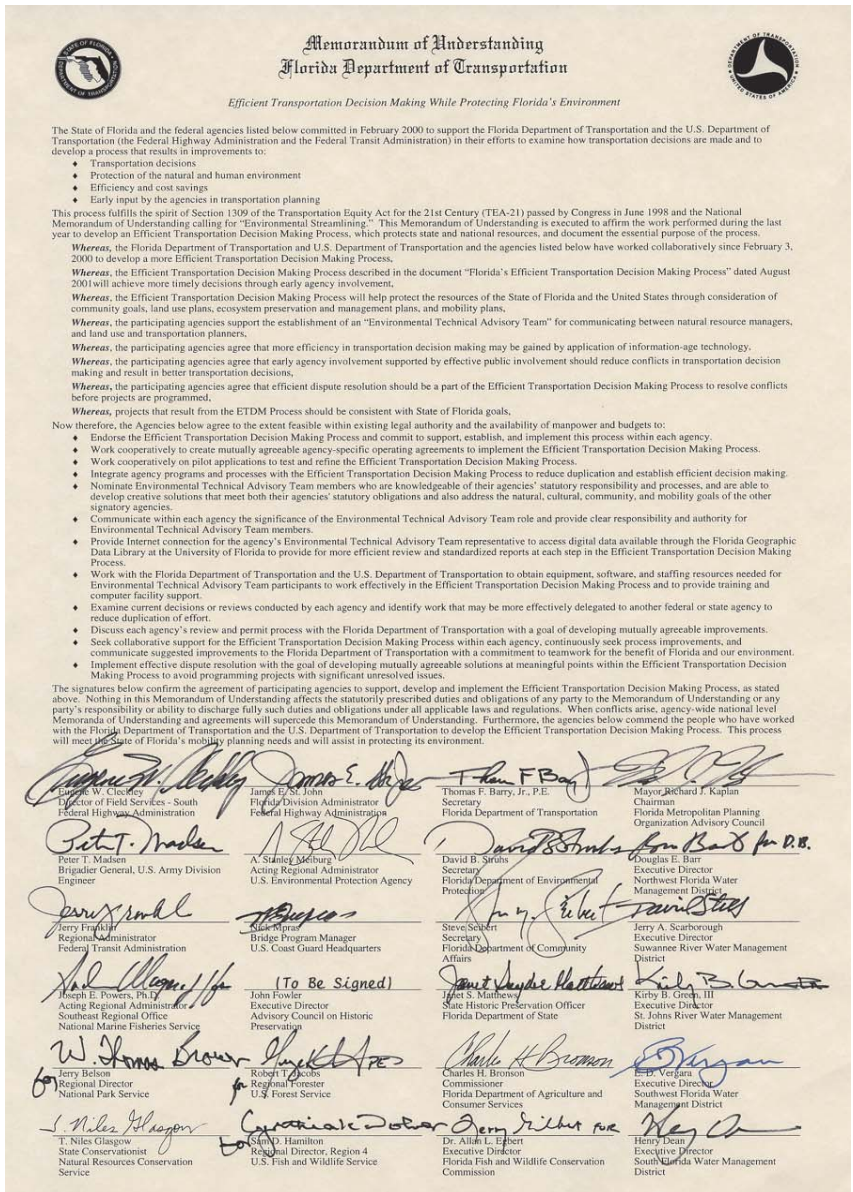 Memorandum of Understanding
Florida Department of Transportation
Efficient Transportation Decision Making While Protecting Florida's Environment
The State of Florida and the federal agencies listed below committed in February 2000 to support the Florida Department of Transportation and the U.S. Department of
Transportation (the Federal Highway Administration and the Federal Transit Administration) in their efforts to examine how transportation decisions are made and to
develop a process that results in improvements to:
♦ Transportation decisions
♦ Protection of the natural and human environment
♦ Efficiency and cost savings
♦ Early input by the agencies in transportation planning
This process fulfills the spirit of Section 1309 of the Transportation Equity Act for the 21st Century (TEA-21) passed by Congress in June 1998 and the National
Memorandum of Understanding calling for "Environmental Streamlining." This Memorandum of Understanding is executed to affirm the work performed during the last
year to develop an Efficient Transportation Decision Making Process, which protects state and national resources, and document the essential purpose of the process.
Whereas, the Florida Department of Transportation and U.S. Department of Transportation and the agencies listed below have worked collaboratively since February 3,
2000 to develop a more Efficient Transportation Decision Making Process,
Whereas, the Efficient Transportation Decision Making Process described in the document "Florida's Efficient Transportation Decision Making Process" dated August
2001will achieve more timely decisions through early agency involvement,
Whereas, the Efficient Transportation Decision Making Process will help protect the resources of the State of Florida and the United States through consideration of
community goals, land use plans, ecosystem preservation and management plans, and mobility plans,
Whereas, the participating agencies support the establishment of an "Environmental Technical Advisory Team" for communicating between natural resource managers,
and land use and transportation planners,
Whereas, the participating agencies agree that more efficiency in transportation decision making may be gained by application of information-age technology,
Whereas, the participating agencies agree that early agency involvement supported by effective public involvement should reduce conflicts in transportation decision
making and result in better transportation decisions,
Whereas, the participating agencies agree that efficient dispute resolution should be a part of the Efficient Transportation Decision Making Process to resolve conflicts
before projects are programmed,
Whereas, projects that result from the ETDM Process should be consistent with State of Florida goals,
Now therefore, the Agencies below agree to the extent feasible within existing legal authority and the availability of manpower and budgets to:
♦ Endorse the Efficient Transportation Decision Making Process and commit to support, establish, and implement this process within each agency.
♦ Work cooperatively to create mutually agreeable agency-specific operating agreements to implement the Efficient Transportation Decision Making Process.
♦ Work cooperatively on pilot applications to test and refine the Efficient Transportation Decision Making Process.
♦ Integrate agency programs and processes with the Efficient Transportation Decision Making Process to reduce duplication and establish efficient decision making.
♦ Nominate Environmental Technical Advisory Team members who are knowledgeable of their agencies' statutory responsibility and processes, and are able to
develop creative solutions that meet both their agencies' statutory obligations and also address the natural, cultural, community, and mobility goals of the other
signatory agencies.
♦ Communicate within each agency the significance of the Environmental Technical Advisory Team role and provide clear responsibility and authority for
Environmental Technical Advisory Team members.
♦ Provide Internet connection for the agency's Environmental Technical Advisory Team representative to access digital data available through the Florida Geographic
Data Library at the University of Florida to provide for more efficient review and standardized reports at each step in the Efficient Transportation Decision Making
Process.
♦ Work with the Florida Department of Transportation and the U.S. Department of Transportation to obtain equipment, software, and staffing resources needed for
Environmental Technical Advisory Team participants to work effectively in the Efficient Transportation Decision Making Process and to provide training and
computer facility support.
♦ Examine current decisions or reviews conducted by each agency and identify work that may be more effectively delegated to another federal or state agency to
reduce duplication of effort.
♦ Discuss each agency's review and permit process with the Florida Department of Transportation with a goal of developing mutually agreeable improvements.
♦ Seek collaborative support for the Efficient Transportation Decision Making Process within each agency, continuously seek process improvements, and
communicate suggested improvements to the Florida Department of Transportation with a commitment to teamwork for the benefit of Florida and our environment.
♦ Implement effective dispute resolution with the goal of developing mutually agreeable solutions at meaningful points within the Efficient Transportation Decision
Making Process to avoid programming projects with significant unresolved issues.
The signatures below confirm the agreement of participating agencies to support, develop and implement the Efficient Transportation Decision Making Process, as stated
above. Nothing in this Memorandum of Understanding affects the statutorily prescribed duties and obligations of any party to the Memorandum of Understanding or any
party's responsibility or ability to discharge fully such duties and obligations under all applicable laws and regulations. When conflicts arise, agency-wide national level
Memoranda of Understanding and agreements will supercede this Memorandum of Understanding. Furthermore, the agencies below commend the people who have worked
with the Florida Department of Transportation and the U.S. Department of Transportation to develop the Efficient Transportation Decision Making Process. This process
will meet the State of Florida's mobility planning needs and will assist in protecting its environment.
Eugene W. Cleckley
Director of Field Services - South
Federal Highway Administration
James E. St. John
Florida Division Administrator
Federal Highway Administration
Thomas F. Barry, Jr., P.E.
Secretary
Florida Department of Transportation
Mayor Richard J. Kaplan
Chairman
Florida Metropolitan Planning
Organization Advisory Council
Peter T. Madsen
Peter T. Madsen
Brigadier General, U.S. Army Division
Engineer
A. Stanley Meiburg
Acting Regional Administrator
U.S. Environmental Protection Agency
David B Struhs
David B. Struhs
Secretary
Florida Department of Environmental
Protection
for D.B.
Douglas E. Barr
Executive Director
Northwest Florida Water
Management District
Jerry Franklin
Regional Administrator
Federal Transit Administration
Nick Mpras
Bridge Program Manager
U.S. Coast Guard Headquarters
Steve Seibert
Secretary
Florida Department of Community
Affairs
Jerry A. Scarborough
Executive Director
Suwannee River Water Management
District
Joseph E. Powers, Ph.D.
Acting Regional Administrator
Southeast Regional Office
National Marine Fisheries Service
(To Be Signed)
John Fowler
Executive Director
Advisory Council on Historic
Preservation
Janet Snyder Matthews
Janet S. Matthews
State Historic Preservation Officer
Florida Department of State
Kirby B. Green, III
Executive Director
St. Johns River Water Management
District
W. Thomas Brown
for
Jerry Belson
Regional Director
National Park Service
for
Robert T. Jacobs
Regional Forester
U.S. Forest Service
Charles H Bronson
Charles H. Bronson
Commissioner
Florida Department of Agriculture and
Consumer Services
E. D. Vergara
Executive Director
Southwest Florida Water
Management District
T. Niles Glasgow
T. Niles Glasgow
State Conservationist
Natural Resources Conservation
Service
for
Sam D. Hamilton
Regional Director, Region 4
U.S. Fish and Wildlife Service
FOR
Dr. Allan L. Egbert
Executive Director
Florida Fish and Wildlife Conservation
Commission
Henry Dean
Executive Director
South Florida Water Management
District